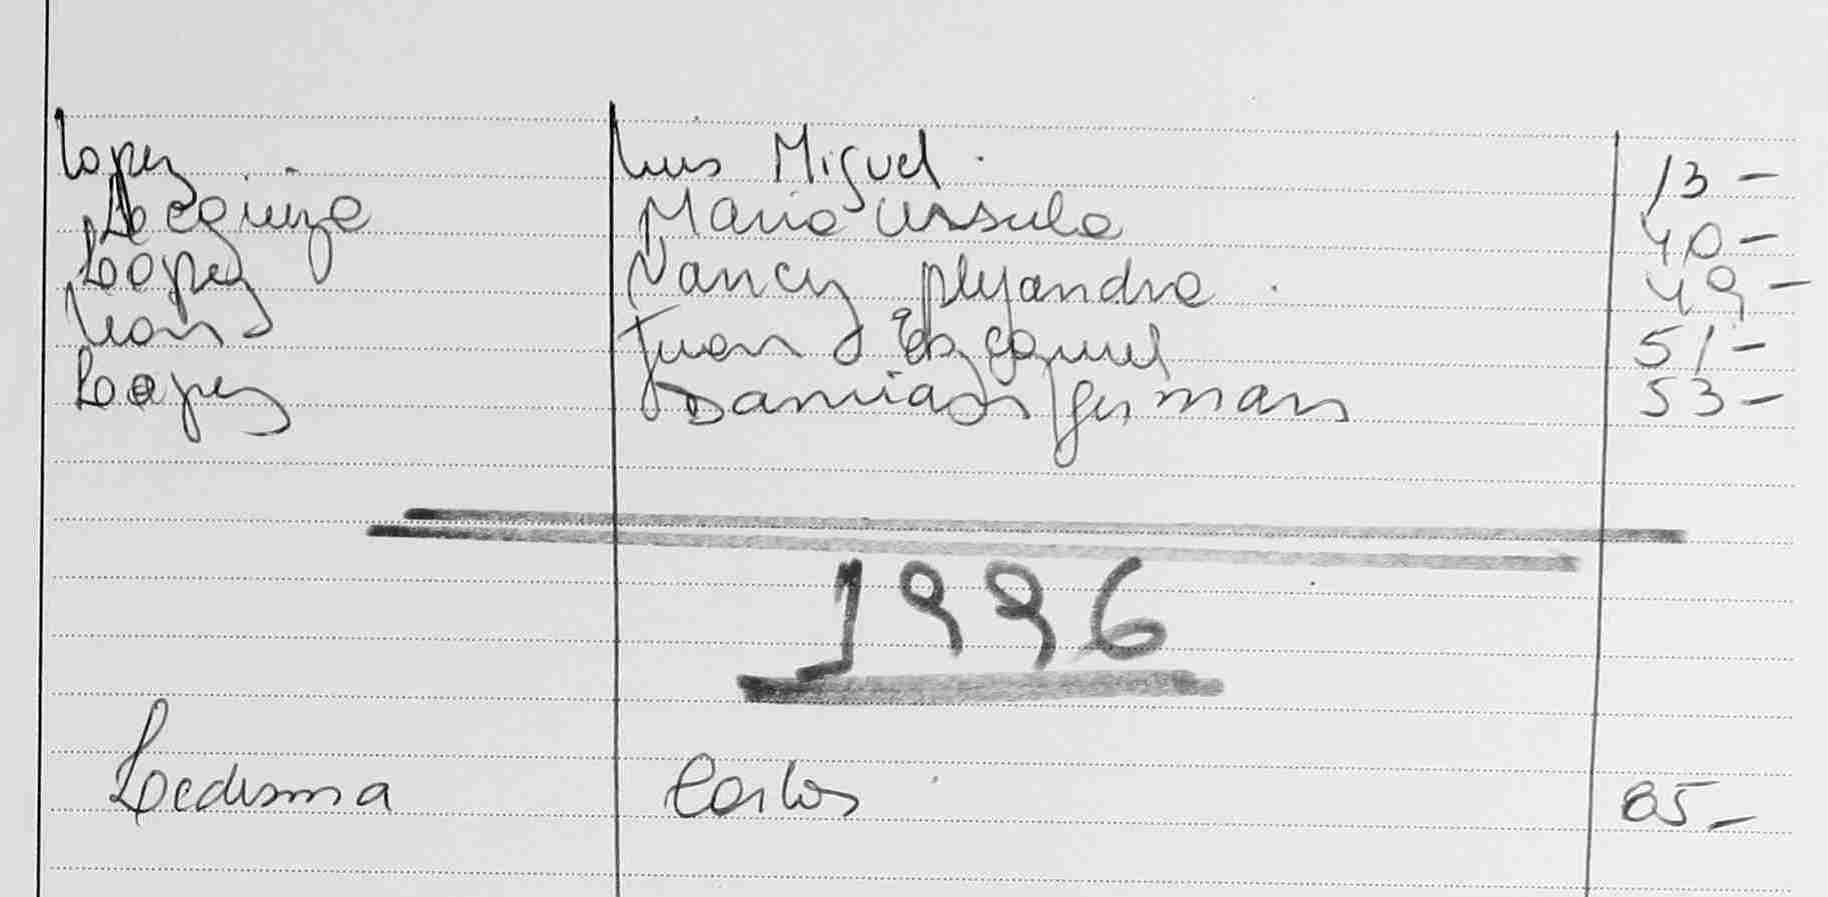 Lopez Luis Miguel. 13-
Lequize Maria Ursula 40-
Lopez Nancy Alejandra. 49-
Leon Juan Ezequiel 51-
Lopez Damian German 53-
1996
Ledesma Carlos 85-